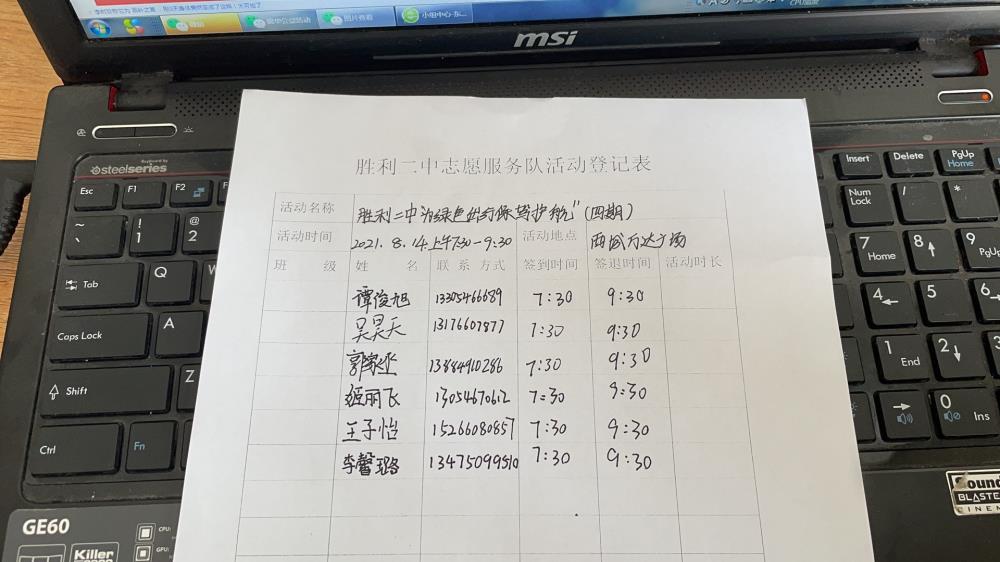 msi
steelseries
Esc F1 F2
Insert Delete PgUp Home
胜利二中志愿服务队活动登记表
活动名称 胜利二中"为绿色出行保驾护航"(四期)
活动时间 2021.8.14上午7:30-9:30 活动地点 西城万达广场
班级 姓名 联系方式 签到时间 签退时间 活动时长
谭俊旭 13305466689 7:30 9:30
吴昊天 13176607877 7:30 9:30
郭家丞 13884910286 7:30 9:30
姬丽飞 13054670612 7:30 9:30
王子怡 15266080857 7:30 9:30
李馨璐 13475099510 7:30 9:30
~ ` ! 1 @ 2
Num Lock / *
Tab Q
7 Home 8 9
Caps Lock A
4 5
Shift Z
1 End 2
Ctrl Fn
0 Ins
GE60
Killer
CPU:
GPU:
Sound
BLASTE
CINEM